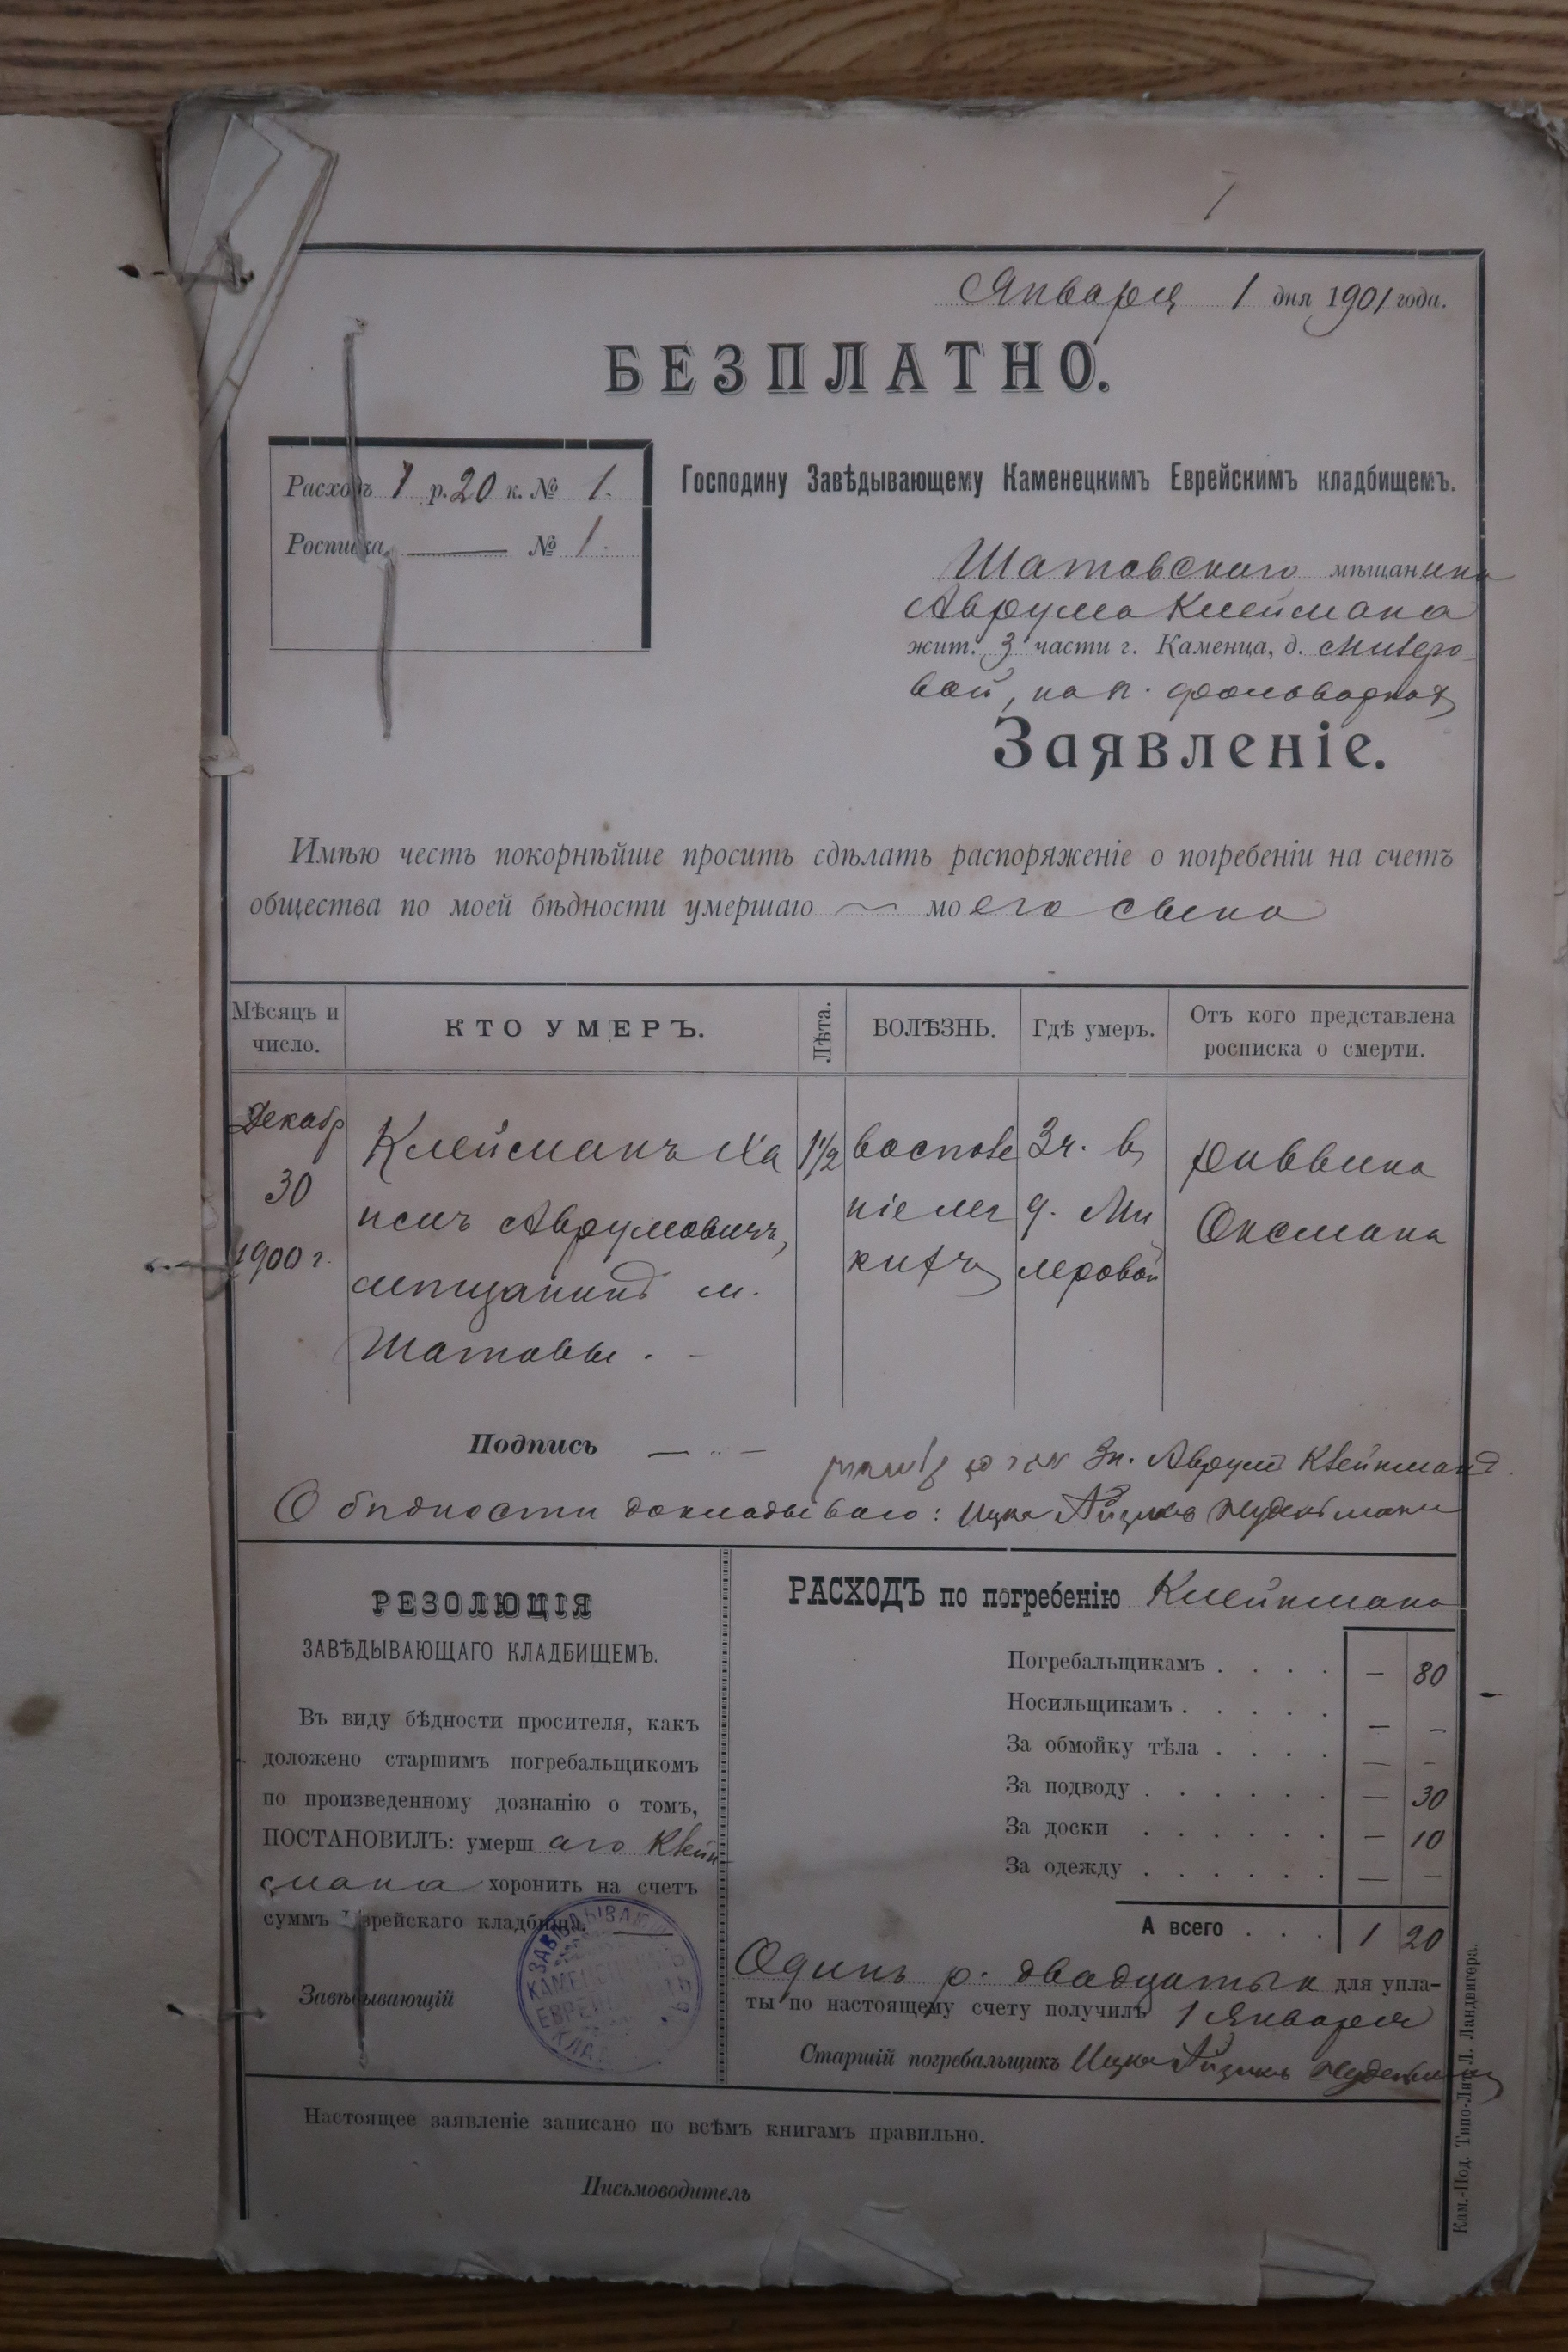 1
Января 1 дня 1901 года.
БЕЗПЛАТНО.
Расходъ 1 р. 20 к. № 1.
Росписка — № 1.
Господину Завѣдывающему Каменецкимъ Еврейскимъ кладбищемъ.
Шатавскаго мѣщанина
Аврума Клеймана
жит. 3 части г. Каменца, д. Милеро-
вой, на п. фольваркахъ
Заявленіе.
Имѣю честь покорнѣйше просить сдѣлать распоряженіе о погребеніи на счетъ
общества по моей бѣдности умершаго — моего сына
Мѣсяцъ и число.
КТО УМЕРЪ.
Лѣта.
БОЛѢЗНЬ.
Гдѣ умеръ.
Отъ кого представлена росписка о смерти.
Декабр
30
1900 г.
Клейманъ Ха
Аврумовичъ,
мѣщанинъ м.
Шатавы.
1 1/2
воспале
ніе лег
кихъ
3 ч. въ
д. Ми
леровой
Раввина
Оксмана
Подпись — Аврумъ Клейнманъ.
О бѣдности докладываю: Ицко Айзикъ
РЕЗОЛЮЦІЯ
ЗАВѢДЫВАЮЩАГО КЛАДБИЩЕМЪ.
Въ виду бѣдности просителя, какъ
доложено старшимъ погребальщикомъ
по произведенному дознанію о томъ,
ПОСТАНОВИЛЪ: умершаго Клейн
мана хоронить на счетъ
суммъ Еврейскаго кладбища.
Завѣдывающій
РАСХОДЪ по погребенію Клейнмана
Погребальщикамъ . . . . — 80
Носильщикамъ . . . . . — —
За обмойку тѣла . . . . — —
За подводу . . . . . . — 30
За доски . . . . . . — 10
За одежду . . . . . . — —
А всего . . . 1 20
Одинъ р. двадцать к для упла-
ты по настоящему счету получилъ 1 Января
Старшій погребальщикъ Ицко Айзикъ
Настоящее заявленіе записано по всѣмъ книгамъ правильно.
Письмоводитель
Кам.-Под. Типо-Лит. Л. Ландвигера.